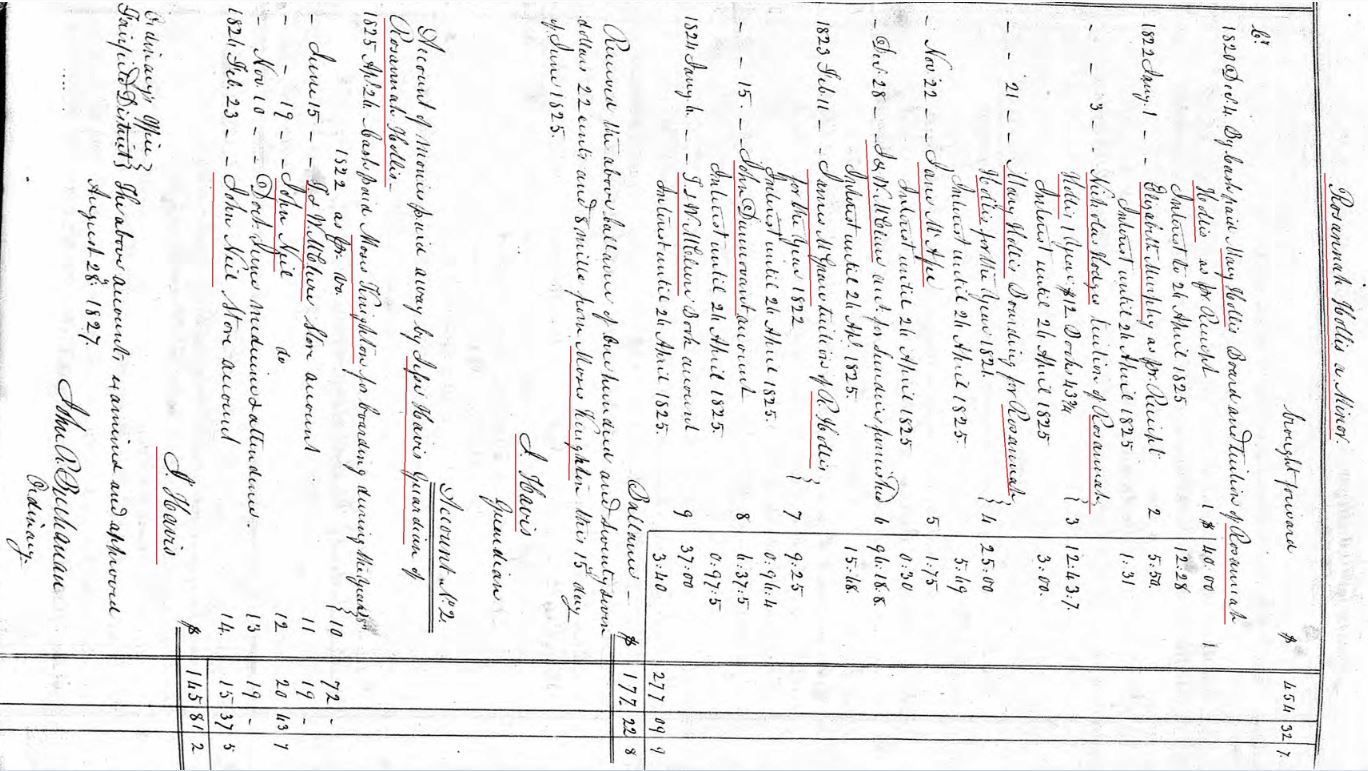 Rosannah Hollis a Minor.
brought forward $ 454 32 7
Cr
1820 Dec. 4 By Cash paid Mary Hollis Board and Tuition of Rosannah
Hollis as pr Receipt 1 $ 40.00
Interest to 24 April 1825 12.28
1822 Jany. 1 - - Elizabeth Murphy as pr. Receipt 2 5.50
Interest until 24 April 1825 1.31
- - 3 - Nicholas Hodges tuition of Rosannah
Hollis 1 Year $12 Books 43¾ } 3 12.43.7
Interest until 24 April 1825 3.00.
- - 21 - - Mary Hollis Bourding for Rosannah
Hollis for the Year 1821. } 4 25.00
Interest until 24 April 1825 5.49
- Nov 22 - - Jane McAfee 5 1.75
Interest until 24 April 1825 0.30
- Dec. 28 - - J & W. McClure act for Sundries furnished 6 96.18.8
Interest until 24 Apl 1825. 15.68
1823 Feb. 11 - - James tuition of R. Hollis
for the Year 1822 } 7 9.25
Interest until 24 April 1825. 0.96.4
- - 15. - - John Dunnovant account 8 6.37.5
Interest until 24 April 1825. 0.97.5
1824 Jany 6. - - J & W. McClure Book account 9 37.00
Interest until 24 April 1825. 3.40
277 09 9
Ballance - $ 177 22 8
Received the above ballance of One hundred and seventy seven
dollars 22 cents and 8 mills from Moses Knighton this 15th day
of June 1825.
J Havis
Guardian
Account No. 2.
Account of Monies paid away by Jesse Havis Guardian of
Rosannah Hollis.
1825 Apl 24. Cash paid Moses Knighton for boarding during the years
1822 as pr. do } 10 72 -
- June 15 - - J & W. McClure Store account 11 19 -
- - 19 - - John Neil do 12 20 43 7
- Nov. 10 - - Doct. medicine & attendance. 13 19 -
1826 Feb. 23 - - John Neil Store account 14. 15 37 5
$ 145 81 2
J. Havis
Ordinarys Office }
Fairfield District } The above accounts examined and approved
August 28th 1827.
John R. Buchanan
Ordinary.